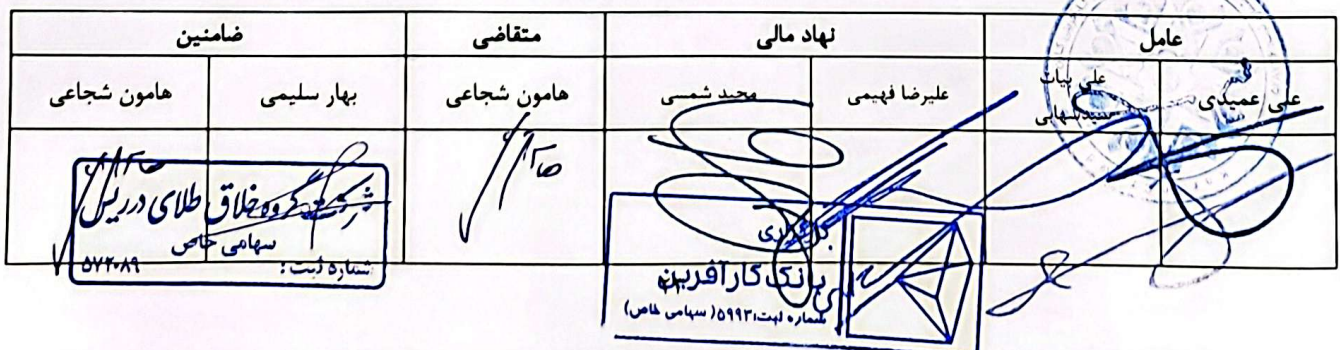 عامل نهاد مالی متقاضی ضامنین
علی عمیدی علی بیات علیرضا فهیمی مجید شمسی هامون شجاعی بهار سلیمی هامون شجاعی
شرکت گروه خلاق طلای درریس
سهامی خاص
شماره ثبت: ۵۷۲۰۸۹
کارگزاری
بانک کارآفرین
شماره ثبت: ۵۹۹۳ (سهامی خاص)